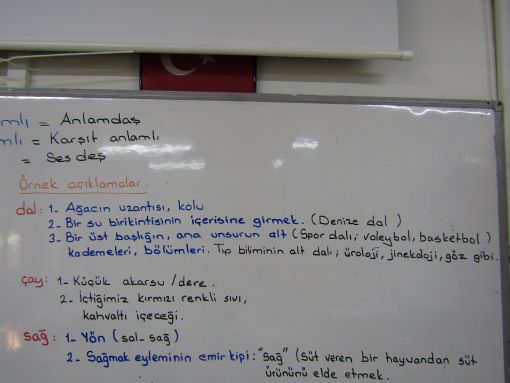 = Anlamdaş
= Karşıt anlamlı
= Sesdeş
Örnek açıklamalar:
dal: 1- Ağacın uzantısı, kolu
2- Bir su birikintisinin içerisine girmek. (Denize dal)
3- Bir üst başlığın, ana unsurun alt (Spor dalı; voleybol, basketbol)
kademeleri, bölümleri. Tıp biliminin alt dalı; üroloji, jinekoloji, göz gibi.
çay: 1- Küçük akarsu/dere.
2- İçtiğimiz kırmızı renkli sıvı,
kahvaltı içeceği.
sağ: 1- Yön (sol-sağ)
2- Sağmak eyleminin emir kipi: "sağ" (süt veren bir hayvandan süt
ürününü elde etmek.